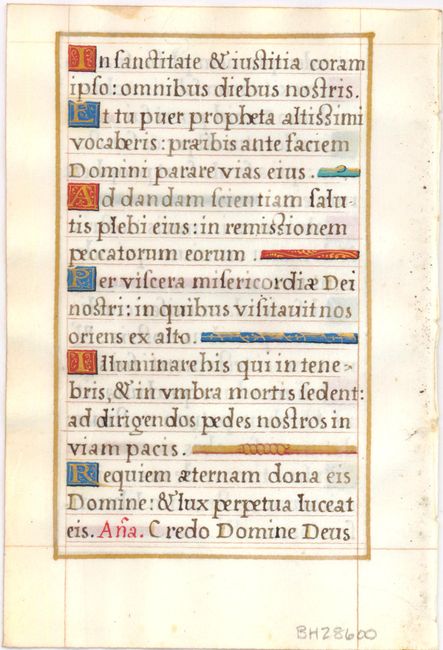 In sanctitate & iustitia coram
ipso: omnibus diebus nostris.
Et tu puer propheta altissimi
vocaberis: præibis ante faciem
Domini parare vias eius.
Ad dandam scientiam salu-
tis plebi eius: in remissionem
peccatorum eorum.
Per viscera misericordiæ Dei
nostri: in quibus visitavit nos
oriens ex alto.
Illuminare his qui in tene-
bris, & in vmbra mortis sedent:
ad dirigendos pedes nostros in
viam pacis.
Requiem æternam dona eis
Domine: & lux perpetua luceat
eis. Aña. Credo Domine Deus
BH28600